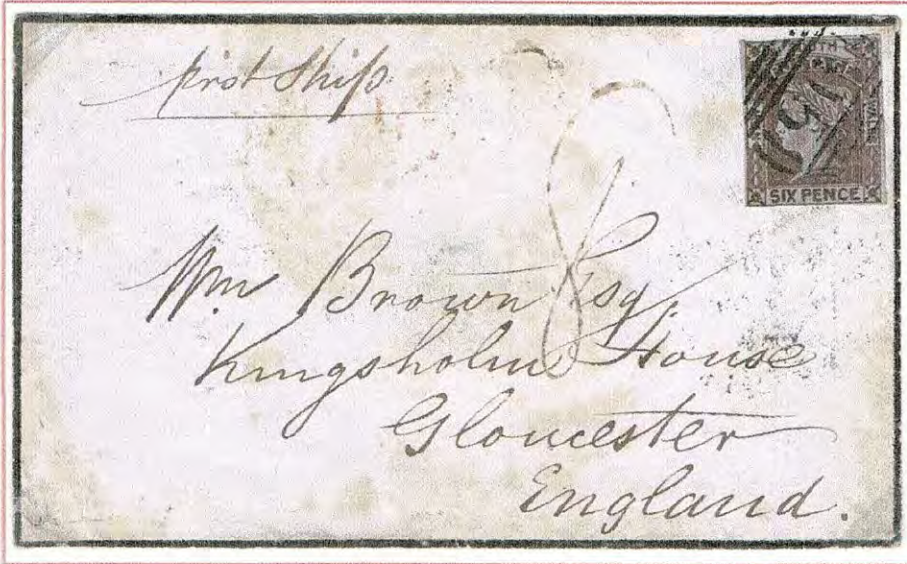 First Ship
SOUTH
WALES
SIX PENCE
8
Wm Brown Esq
Kingsholm House
Gloucester
England.